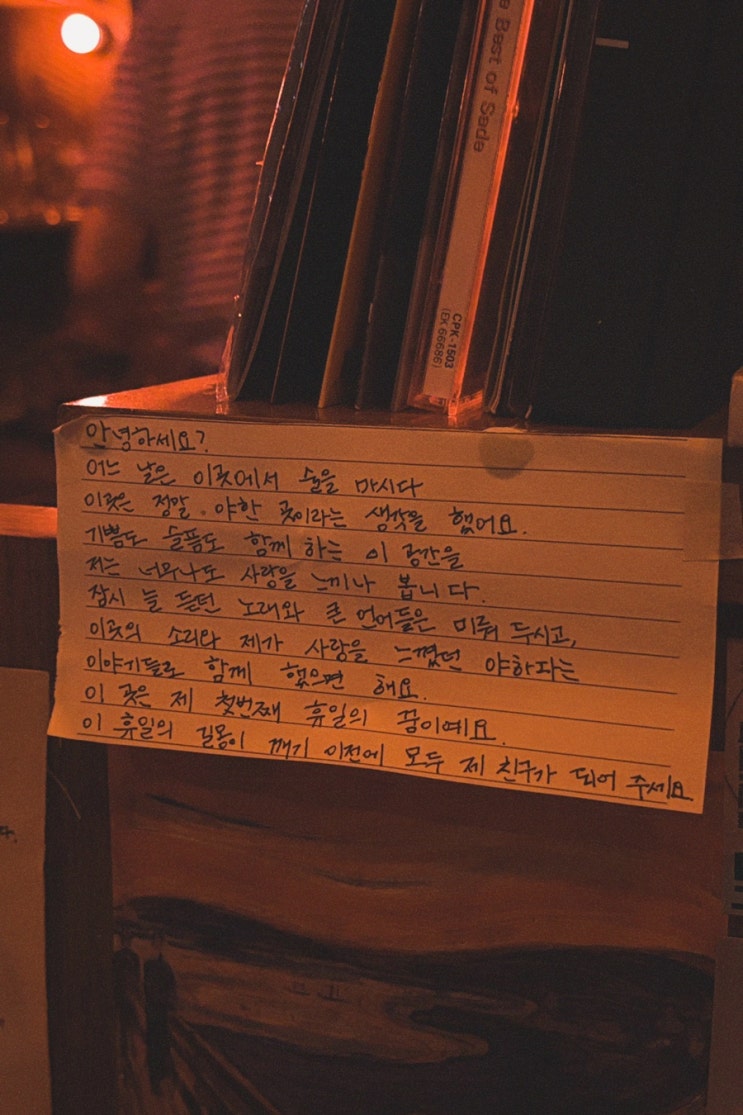 e Best of Sade
CPK-1503
(EK 66686)
안녕하세요?
어느 날은 이곳에서 술을 마시다
이곳은 정말 야한 곳이라는 생각을 했어요.
기쁨도 슬픔도 함께 하는 이 공간을
저는 너와나도 사랑을 느끼나 봅니다.
잠시 늘 듣던 노래와 큰 언어들은 미뤄 두시고,
이곳의 소리와 제가 사랑을 느꼈던 야하다는
이야기들로 함께 했으면 해요.
이 곳은 제 첫번째 휴일의 꿈이에요.
이 휴일의 길몽이 깨기 이전에 모두 제 친구가 되어 주세요.
다.